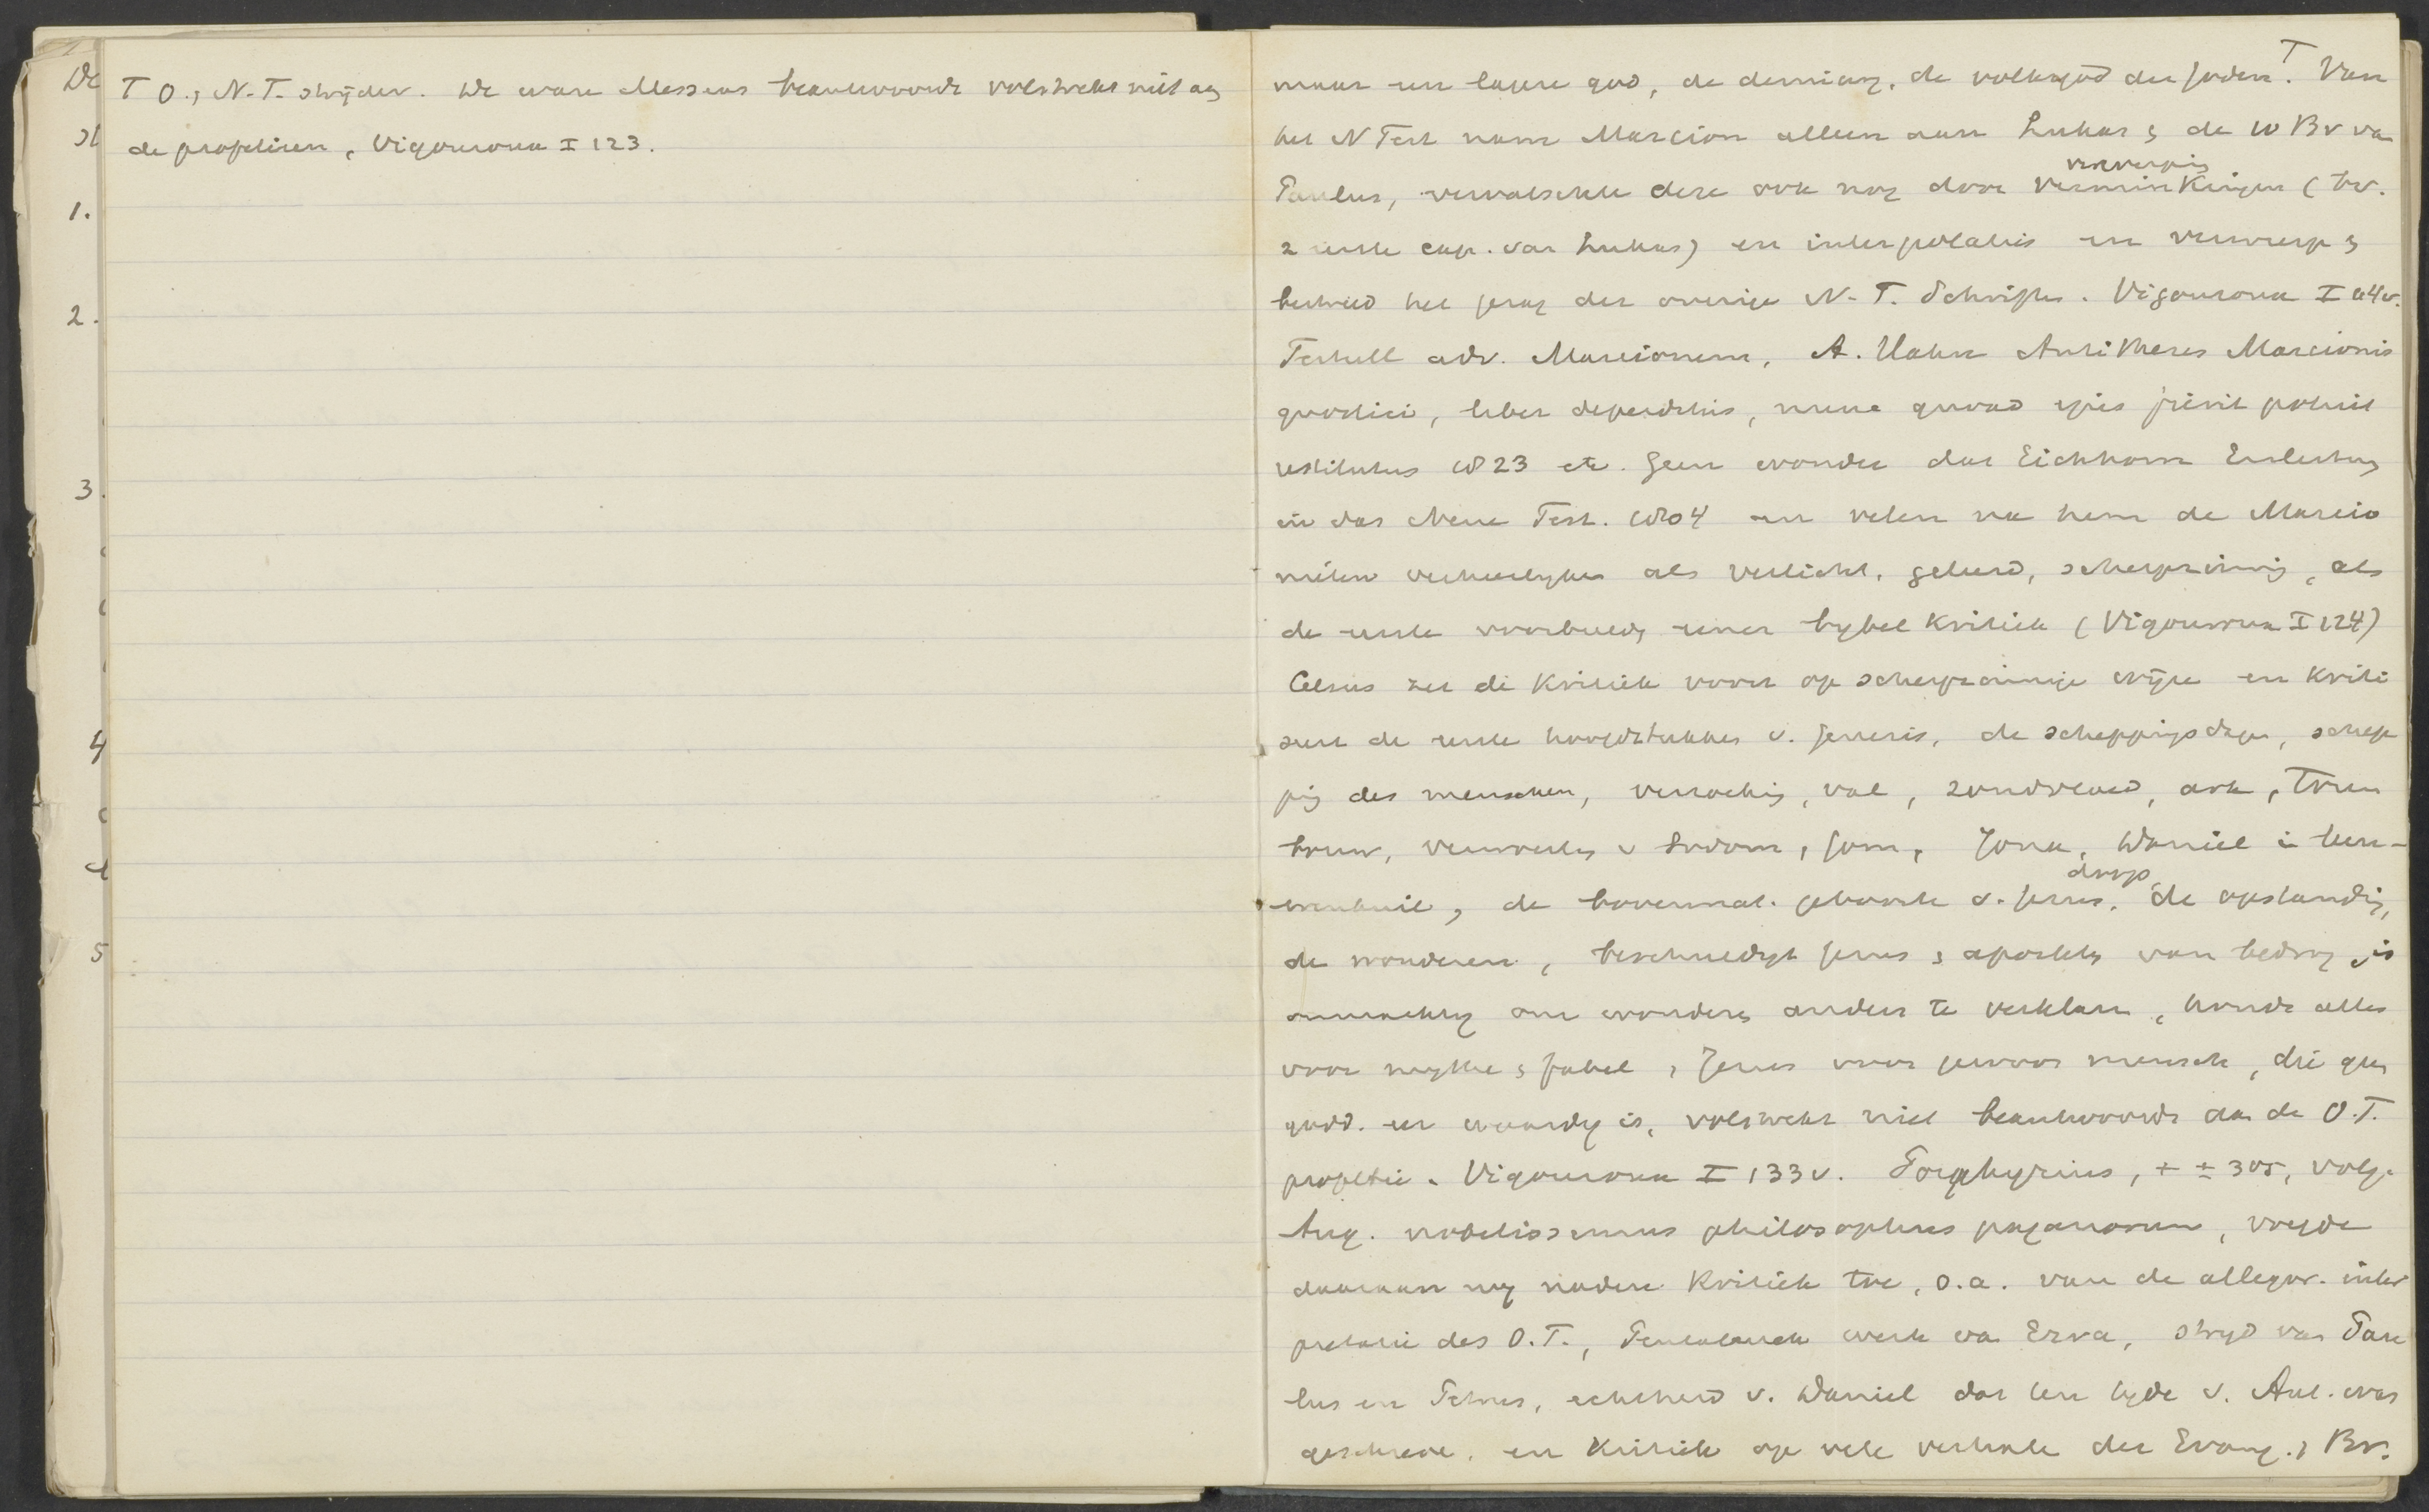 De
1.
2.
3.
4
5
T O. , N. T. strijden. De ware Messias beantwoordt volstrekt niet aan
de profetieën, Vigouroux I 123.
maar een lagere god, de demiurg, de volksgod der Joden T. Van
het N Test nam Marcion alleen aan Lukas & de 10 Br van
verwerping
Paulus, vervalschte deze ook nog door verminkingen (bv.
2 eerste cap. van Lukas) en interpolaties en verwerp &
bestreed het gezag der overige N. T. Schriften. Vigouroux I 114v.
Tertull adv. Marcionem, A. Hahn Antitheses Marcionis
gnostici, liber deperditus, nunc quoad ejus fieri potuit
restitutus 1823 etc. Geen wonder dat Eichhorn Einleitung
in das Neue Test. 1804 en velen na hem de Marcio
nieten verheerlijken als verlicht, geleerd, scherpzinnig, als
de eerste voorbeelden eener bijbel kritiek (Vigouroux I 124)
Celsus zet die kritiek voort op scherpzinnige wijze en kriti
seert de eerste hoofdstukken v. Genesis, de scheppingsdagen, schep
ping des menschen, verzoeking, val, zondvloed, ark, Toren
bouw, verwoesting v Sodom, Jona, Daniel in leeu-
doop
wenkuil, de bovennat. geboorte v. Jezus, de opstanding,
de wonderen, beschuldigt Jezus & apostelen van bedrog, is
onmachtig om wonderen anders te verklaren, houdt alles
voor mythe & fabel, Jezus voor gewoon mensch, die geen
godd. eer waardig is, volstrekt niet beantwoordt aan de O.T.
profetie. Vigouroux I 133v. Porphyrius, + ± 305, volg.
Aug. nobilissimus philosophus paganorum, voegde
daaraan nog nadere kritiek toe, o.a. van de allegor. inter
pretatie des O.T., Pentateuch werk van Ezra, strijd van Pau
lus en Petrus, echtheid v. Daniel dat ten tijde v. Ant. was
geschreven, en kritiek op vele verhalen der Evang. , Br.